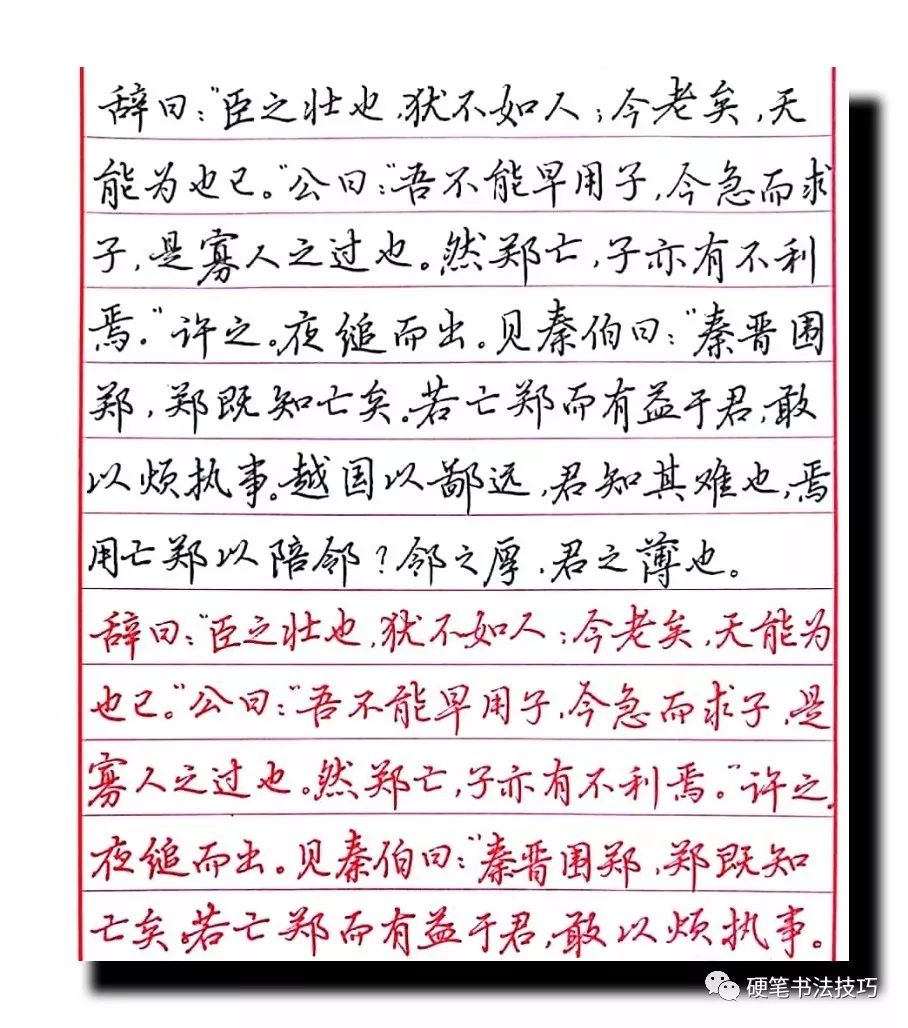 辞曰:“臣之壮也,犹不如人;今老矣,无
能为也已。”公曰:“吾不能早用子,今急而求
子,是寡人之过也。然郑亡,子亦有不利
焉。”许之。夜缒而出。见秦伯曰:“秦晋围
郑,郑既知亡矣。若亡郑而有益于君,敢
以烦执事。越国以鄙远,君知其难也,焉
用亡郑以陪邻?邻之厚,君之薄也。
辞曰:“臣之壮也,犹不如人;今老矣,无能为
也已。”公曰:“吾不能早用子,今急而求子,是
寡人之过也。然郑亡,子亦有不利焉。”许之。
夜缒而出。见秦伯曰:“秦晋围郑,郑既知
亡矣。若亡郑而有益于君,敢以烦执事。
硬笔书法技巧